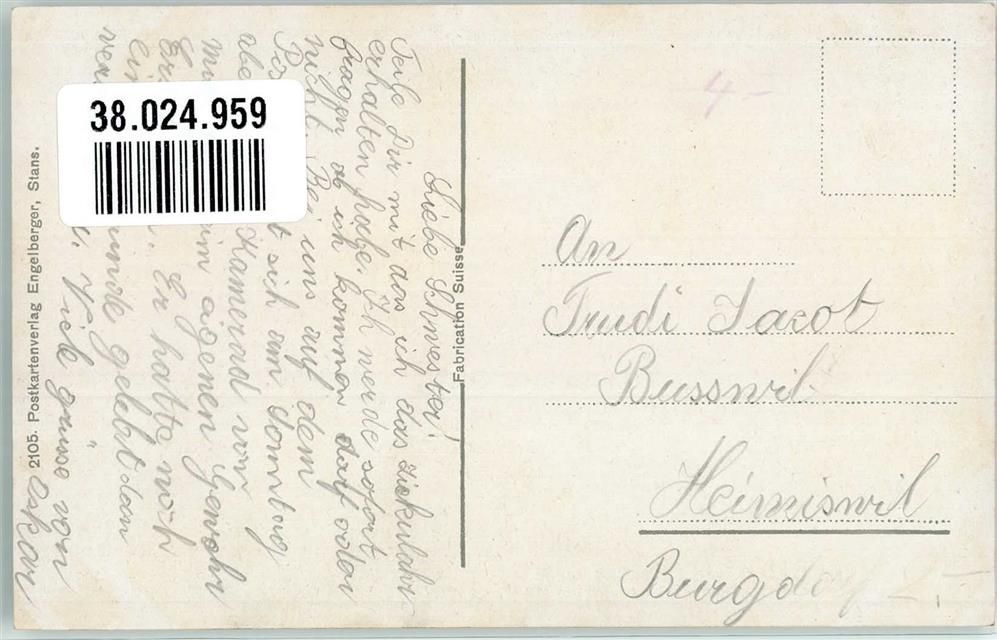 Liebe Schwester!
Teile Dir mit das ich das Zirkulahr
erhalten habe. Ich werde sofort
fragen ob ich kommen darf oder
nicht. Bei uns auf dem
Pos t sich am donnstag
abe Kamerad von
mi im aigenen Gewehr
Er . Er hatte noch
ein unde gelebt dan
ver . Viele grüsse von
Oskar
38.024.959
2105. Postkartenverlag Engelberger, Stans.
Fabrication Suisse
4.-
An
Trudi Jacot
Busswil
Heimiswil
Burgdorf